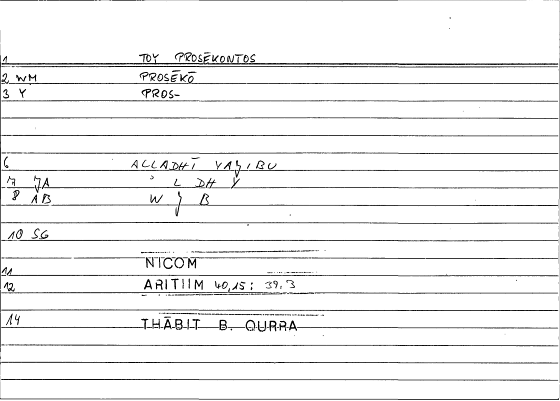 1 TOY PROSĒKONTOS
2 WM PROSĒKŌ
3 Y PROS-
6 ALLADHĪ YAJIBU
7 JA ʾ L DH Y
8 AB W J B
10 SG
11 NICOM
12 ARITIIM 40,15; 39,3
14 THĀBIT B. QURRA